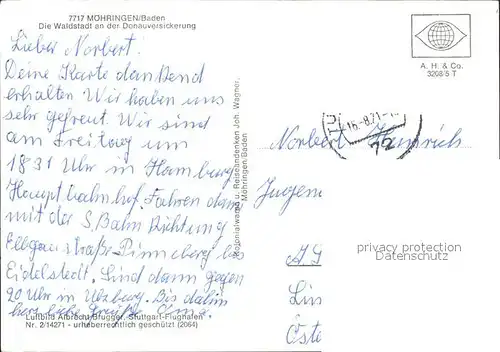 7717 MÖHRINGEN/Baden
Die Waldstadt an der Donauversickerung
Lieber Norbert!
Deine Karte dankend
erhalten Wir haben uns
sehr gefreut. Wir sind
am Freitag um
18 31 Uhr in Hamburg
Hauptbahnhof. Fahren dann
mit der S.Bahn Richtung
Ellgaustraße Pinneberg bis
Eidelstedt. Sind dann gegen
20 Uhr in Ulzburg. Bis dahin
herzliche Grüße Oma.
Luftbild Albrecht Brugger, Stuttgart-Flughafen
Nr. 2/14271 - urheberrechtlich geschützt (2064)
Kolonialwaren u. Reiseandenken Joh. Wagner,
Möhringen/Baden
A. H. & Co.
3208/5 T
16.-8.71
Norbert Heinrich
Jugen
privacy protection
Datenschutz
Lin
Öste